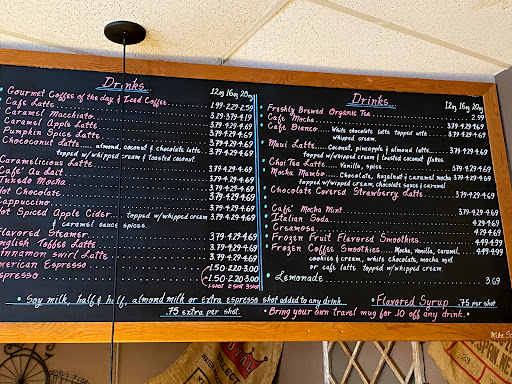 Drinks...
12oz 16oz 20oz
Gourmet Coffee of the day & Iced Coffee... 1.99-2.29-2.59
Cafe Latte
Caramel Macchiato 3.29-3.79-4.19
Caramel Apple Latte 3.79-4.29-4.69
Pumpkin Spice Latte 3.79-4.29-4.69
Chococonut Latte..... almond, coconut & chocolate latte 3.79-4.29-4.69
topped w/whipped cream & toasted coconut.
Caramelicious Latte
Cafe' Au Lait 3.79-4.29-4.69
Tuxedo Mocha 3.79-4.29-4.69
Hot Chocolate 3.79-4.29-4.69
Cappuccino 3.79-4.29-4.69
Hot Spiced Apple Cider... topped w/whipped cream 3.79-4.29-4.69
& caramel sauce, spices.
Flavored Steamer 3.79-4.29-4.69
English Toffee Latte 3.79-4.29-4.69
Cinnamon Swirl Latte 3.79-4.29-4.69
American Espresso 1.50-2.20-3.00
Espresso 1.50-2.20-3.00
1 SHOT 2 SHOT 3 SHOT
Drinks...
12oz 16oz 20oz
Freshly Brewed Organic Tea 2.59
Cafe Mocha 3.79-4.29-4.69
Cafe Bianco.... White chocolate latte topped with 3.79-4.29-4.69
whipped cream.
Maui Latte..... Coconut, pineapple & almond latte 3.79-4.29-4.69
topped w/whipped cream & toasted coconut flakes.
Chai Tea Latte.... Vanilla, spice. 3.79-4.29-4.69
Mocha Mambo..... Chocolate, hazelnut & caramel mocha 3.79-4.29-4.69
topped w/whipped cream, chocolate sauce & caramel
Chocolate Covered Strawberry Latte 3.79-4.29-4.69
Cafe' Mocha Mint 3.79-4.29-4.69
Italian Soda 4.29-4.69
Creamosa 4.29-4.69
Frozen Fruit Flavored Smoothies 4.49-4.99
Frozen Coffee Smoothies... Mocha, vanilla, caramel, 4.49-4.99
cookies & cream, white chocolate, mocha mint
or cafe latte topped w/whipped cream.
Lemonade 3.69
Soy milk, half & half, almond milk or extra espresso shot added to any drink
.75 extra per shot
Flavored Syrup .75 per shot
Bring your own travel mug for 10 off any drink.
SELECT